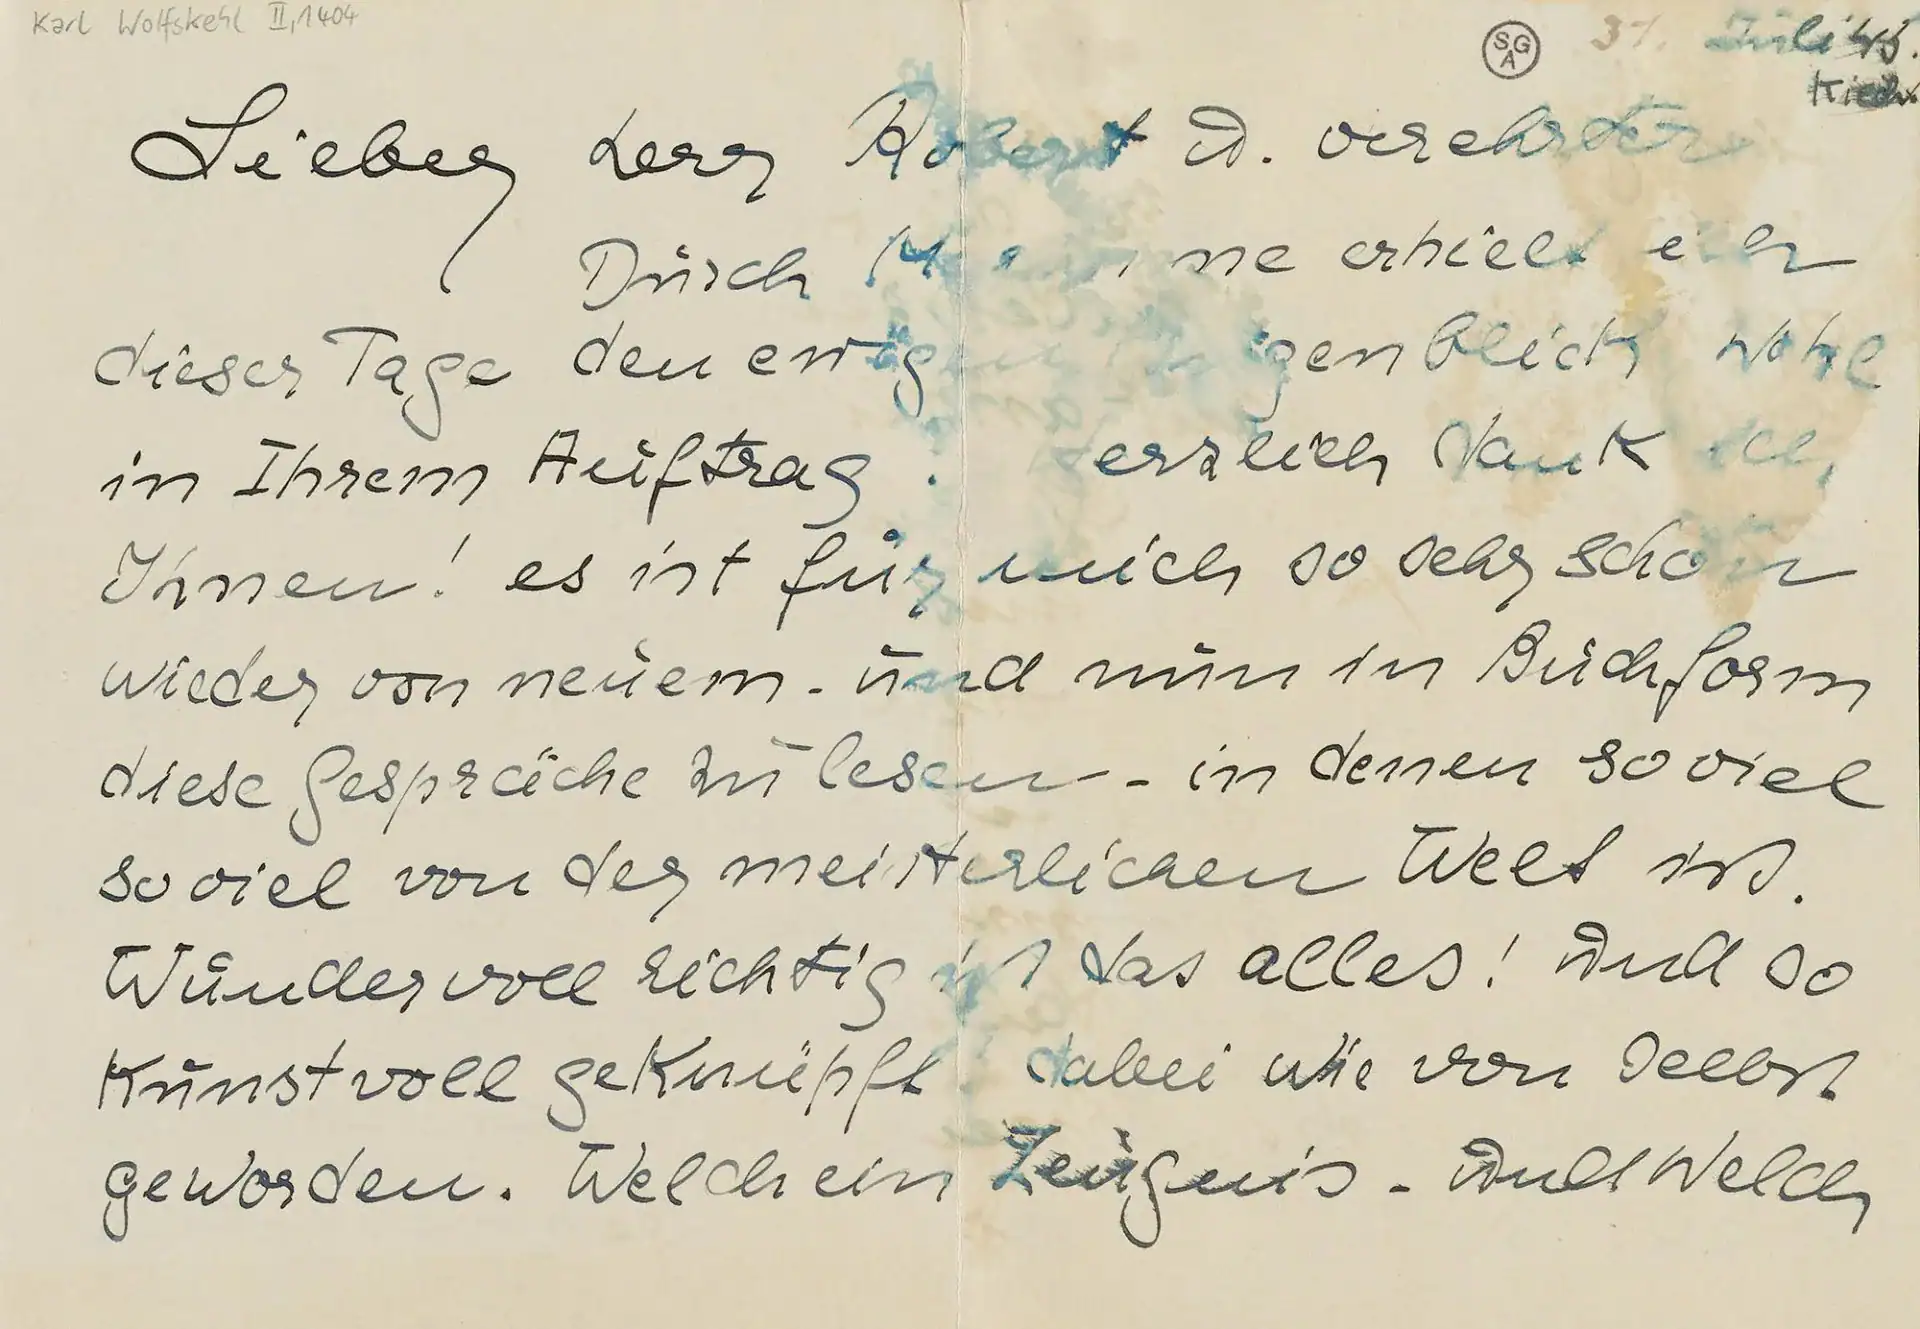 Karl Wolfskehl II,1404
SGA
31. Juli 45.
Kiechl.
Lieber Herr Robert u. verehrter
Durch M ne erhielt ich
dieser Tage den ewigen Augenblick wohl
in Ihrem Auftrag. Herzlich dank ich
Ihnen! es ist für mich so sehr schön
wieder von neuem - und nun in Buchform
diese Gespräche zu lesen - in denen so viel
so viel von der meisterlichen Welt ist.
Wundervoll richtig ist das alles! Und so
Kunstvoll geknüpft dabei wie von selbst
geworden. Welch ein Zeugnis - Und Welch